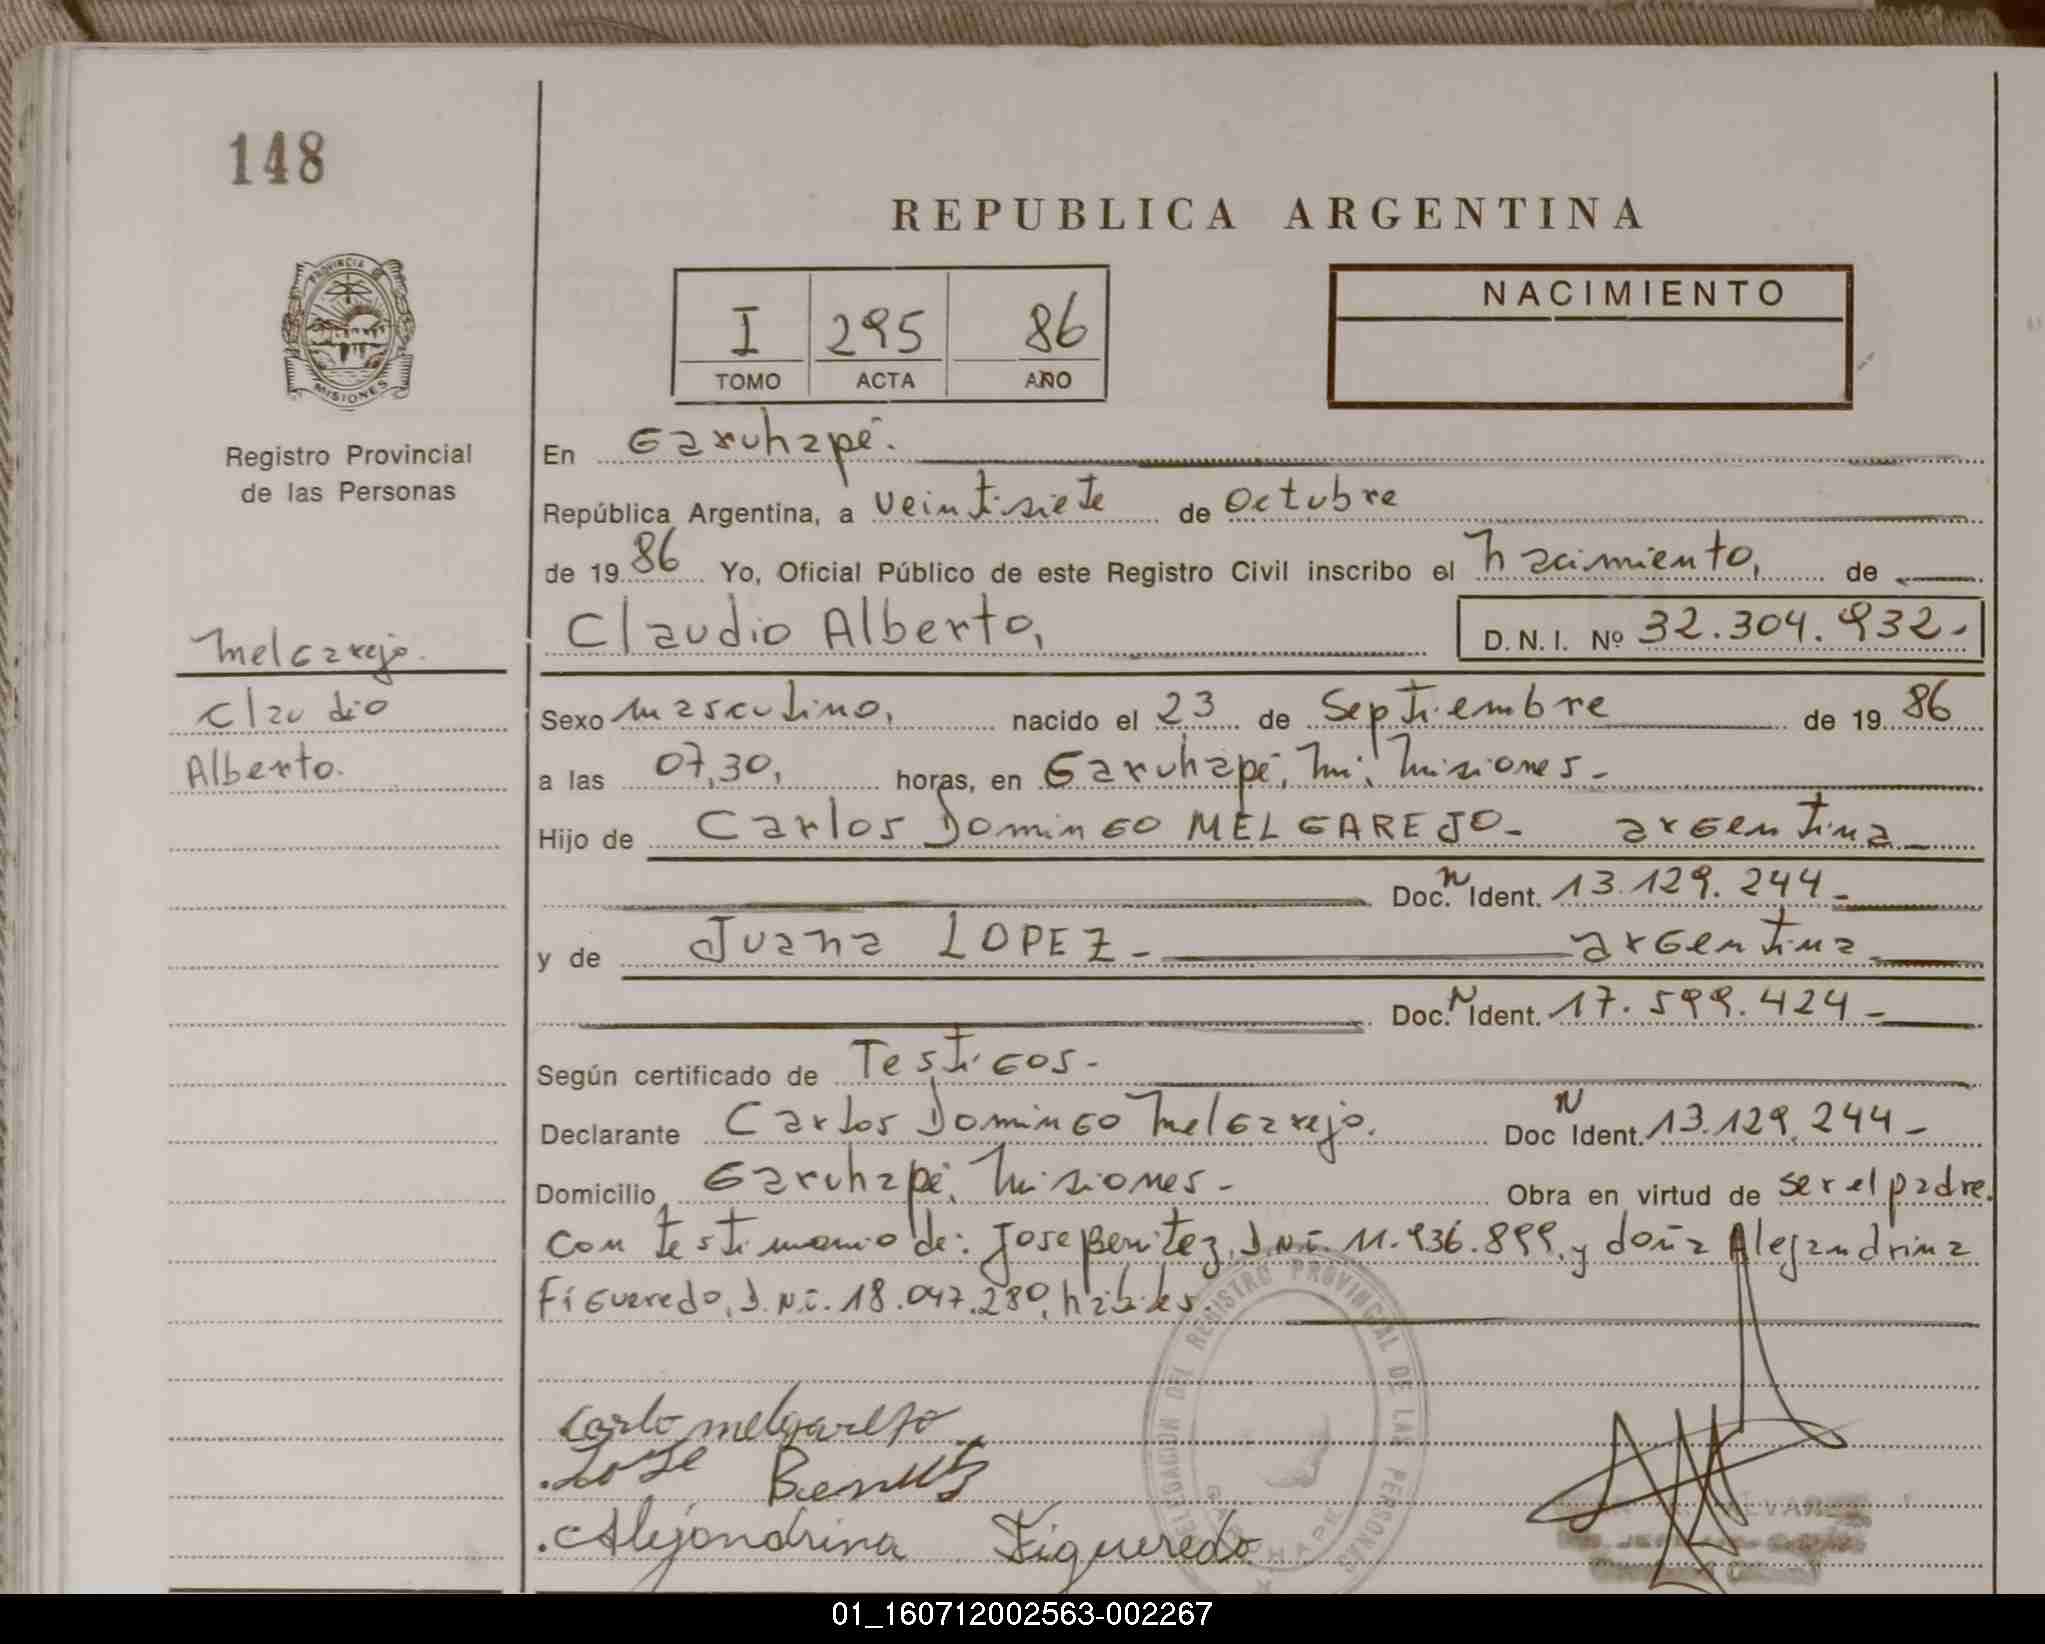 148
REPUBLICA ARGENTINA
PROVINCIA DE
MISIONES
NACIMIENTO
I 295 86
TOMO ACTA AÑO
Registro Provincial
de las Personas
En Garuhapé.
República Argentina, a veintisiete de octubre
de 1986 Yo, Oficial Público de este Registro Civil inscribo el nacimiento, de
Claudio Alberto, D.N.I. Nº 32.304.932-
Melgarejo.
Claudio
Alberto.
Sexo masculino, nacido el 23 de Septiembre de 1986
a las 07,30, horas, en Garuhapé, Mi. Misiones-
Hijo de Carlos Domingo MELGAREJO- argentina
Doc. N Ident. 13.129.244-
y de Juana LOPEZ- argentina
Doc. N Ident. 17.599.424-
Según certificado de Testigos-
Declarante Carlos Domingo Melgarejo. Doc N Ident. 13.129.244-
Domicilio Garuhapé, Misiones- Obra en virtud de ser el padre.
Con testimonio de: Jose Benitez, D.N.i. 11.936.899, y doña Alejandrina
Figueredo, D.N.i. 18.047.280, hábiles.
DELEGACION DEL REGISTRO PROVINCIAL DE LAS PERSONAS
Carlo melgarejo
Jose Benitez
Alejandrina Figueredo
01_160712002563-002267